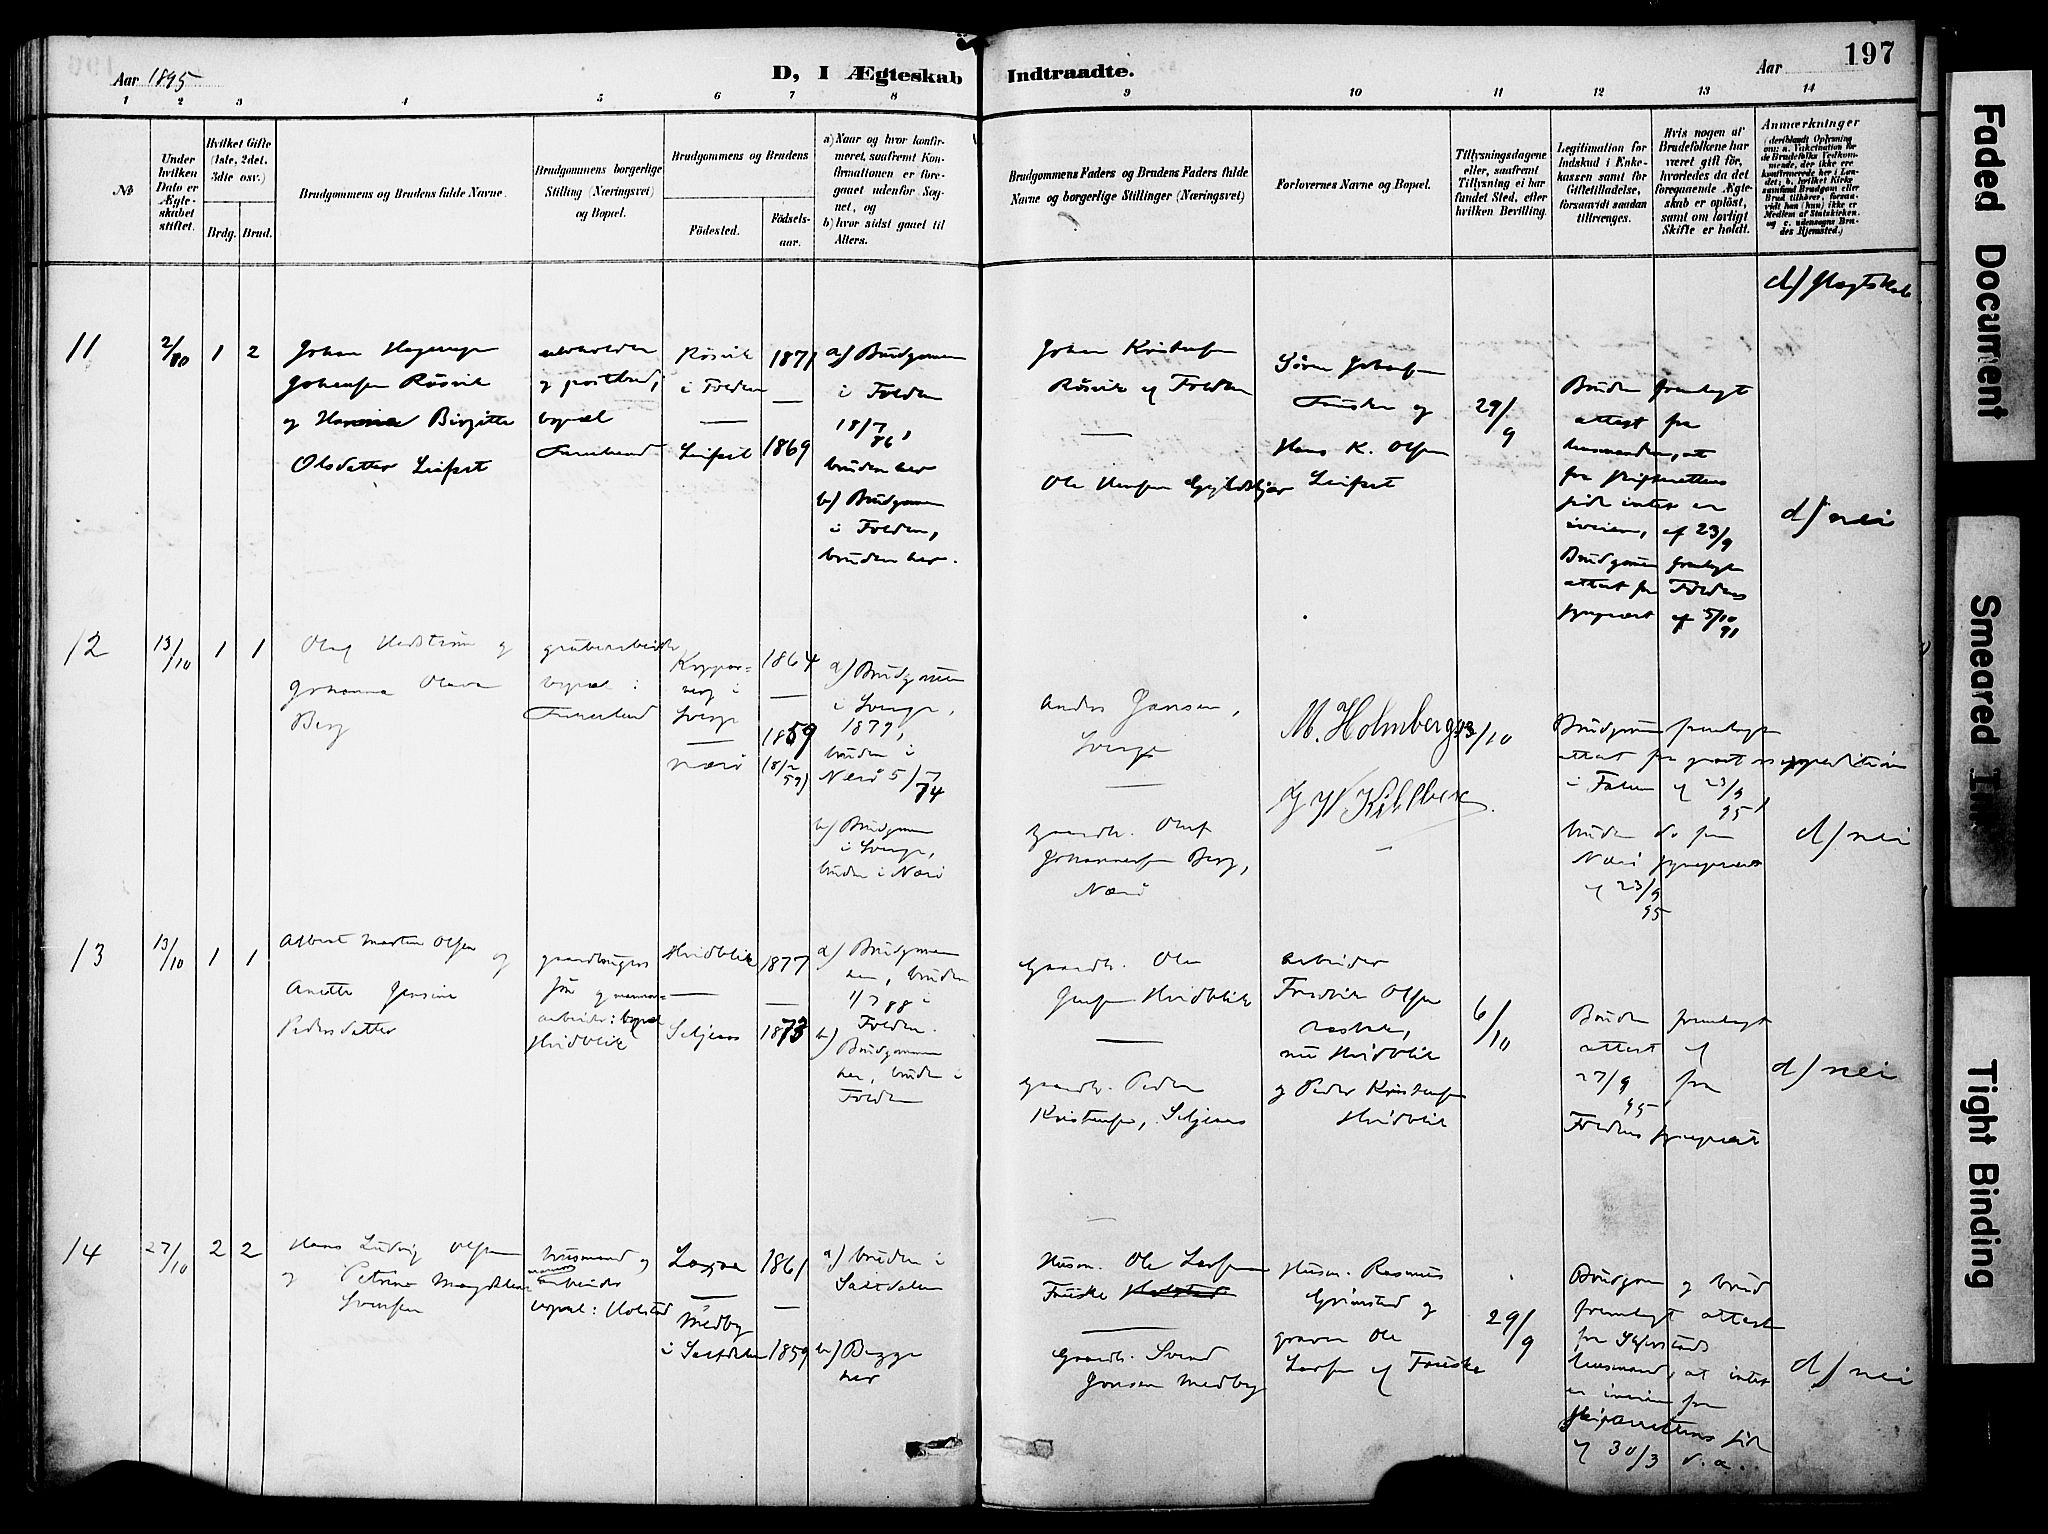 Aar 1895
D, I Ægteskab
Indtraadte.
Aar
197
1 2 3 4 5 6 7 8 9 10 11 12 13 14
No
Under hvilken Dato er Ægteskabet stiftet.
Hvilket Gifte (1ste, 2det, 3die osv.)
Brdg. Brud.
Brudgommens og Brudens fulde Navne.
Brudgommens borgerlige Stilling (Næringsvei) og Bopæl.
Brudgommens og Brudens
Födested.
Födsels-aar.
a) Naar og hvor konfirmeret, saafremt Konfirmationen er foregaaet udenfor Sognet, og
b) hvor sidst gaaet til Alters.
Brudgommens Faders og Brudens Faders fulde Navne og borgerlige Stillinger (Næringsvei)
Forlovernes Navne og Bopæl.
Tillysningsdagene eller, saafremt Tillysning ei har fundet Sted, efter hvilken Bevilling.
Legitimation for Indskud i Enkekassen samt for Giftetilladelse, forsaavidt saadan tiltrænges.
Hvis nogen af Brudefolkene har været gift för, hvorledes da det foregaaende Ægteskab er oplöst, samt om lovligt Skifte er holdt.
Anmærkninger
d) Slægtskab
11
2/10
1 2
Johan
Johansen Røsvik
og Hanna Birgitte
Olsdatter Leifset
og postbud,
bopæl
Røsvik
i Folden
—
Leifset
1871
—
1869
a) Brudgommen
i Folden
18/7 86,
bruden her
b) Brudgommen
i Folden,
bruden her.
Johan Kristensen
Røsvik af Folden
—
Ole Hansen
Søren Johansen
Fauske og
Hans K. Olsen
Leifset
29/9
Bruden fremlagt
attest fra
lensmanden, at
fra skifterettens
side intet er
iveien, af 23/9
Brudgommen fremlagt
attest fra Foldens
af 5/10 91
d) nei
12
13/10
1 1
Olaf Hedström og
Johanna Olava
Berg
grubearbeider
bopæl:
Koppar-
berg i
Sverge
—
Nærö
1864
—
1859
(8/2 59)
a) Brudgommen
i Sverge,
1879,
bruden i
Nærö 5/7 74
b) Brudgommen
i Sverge,
bruden i Nærö
Anders Jansen,
Sverge
—
gaardb. Oluf
Johannesen Berg,
Nærö
M. Holmberg
13/10
Brudgommen fremlagt
attest fra pastorsexpeditionen
i Falun af 23/9 95,
bruden do fra
Nærö
af 23/9 95
d) nei
13
13/10
1 1
Albert Martin Olsen og
Anette Jensine
Pedersdatter
gaardbrugers
søn og
arbeider: bopæl
Hvidblik
Hvidblik
—
Seljeaas
1877
—
1873
a) Brudgommen
her, bruden
1/7 88 i
Folden.
b) Brudgommen
her, bruden i
Folden
Gaardb. Ole
Jensen Hvidblik
—
Gaardb. Peder
Kristensen, Seljeaas
arbeider
Fredrik Olsen
nu Hvidblik
og Peder Kristensen
Hvidblik
6/10
Bruden fremlagt
attest af
27/9 95 fra
Foldens
d) nei
14
27/10
2 2
Hans Ludvig Olsen
og Petrine Magdalena
Svensen
husmand og
arbeider
bopæl: Holstad
—
Medby
i Saltdalen
1861
—
1859
a) bruden i
Saltdalen
b) Begge
her
Husm. Ole Larsen
Fauske Holstad
—
Gaardb. Svend
Jonsen Medby
Husm. Rasmus
Grimstad og
graver Ole
Larsen af Fauske
29/9
Brudgom og brud
fremlagt attest
fra Skjerstads
lensmand, at intet
er iveien fra
skifterettens side
af 30/3 d.a.
d) nei
Faded Document
Smeared Ink
Tight Binding